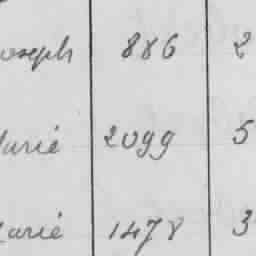 oseph 886 2
Marié 2099 5
Marié 1478 3